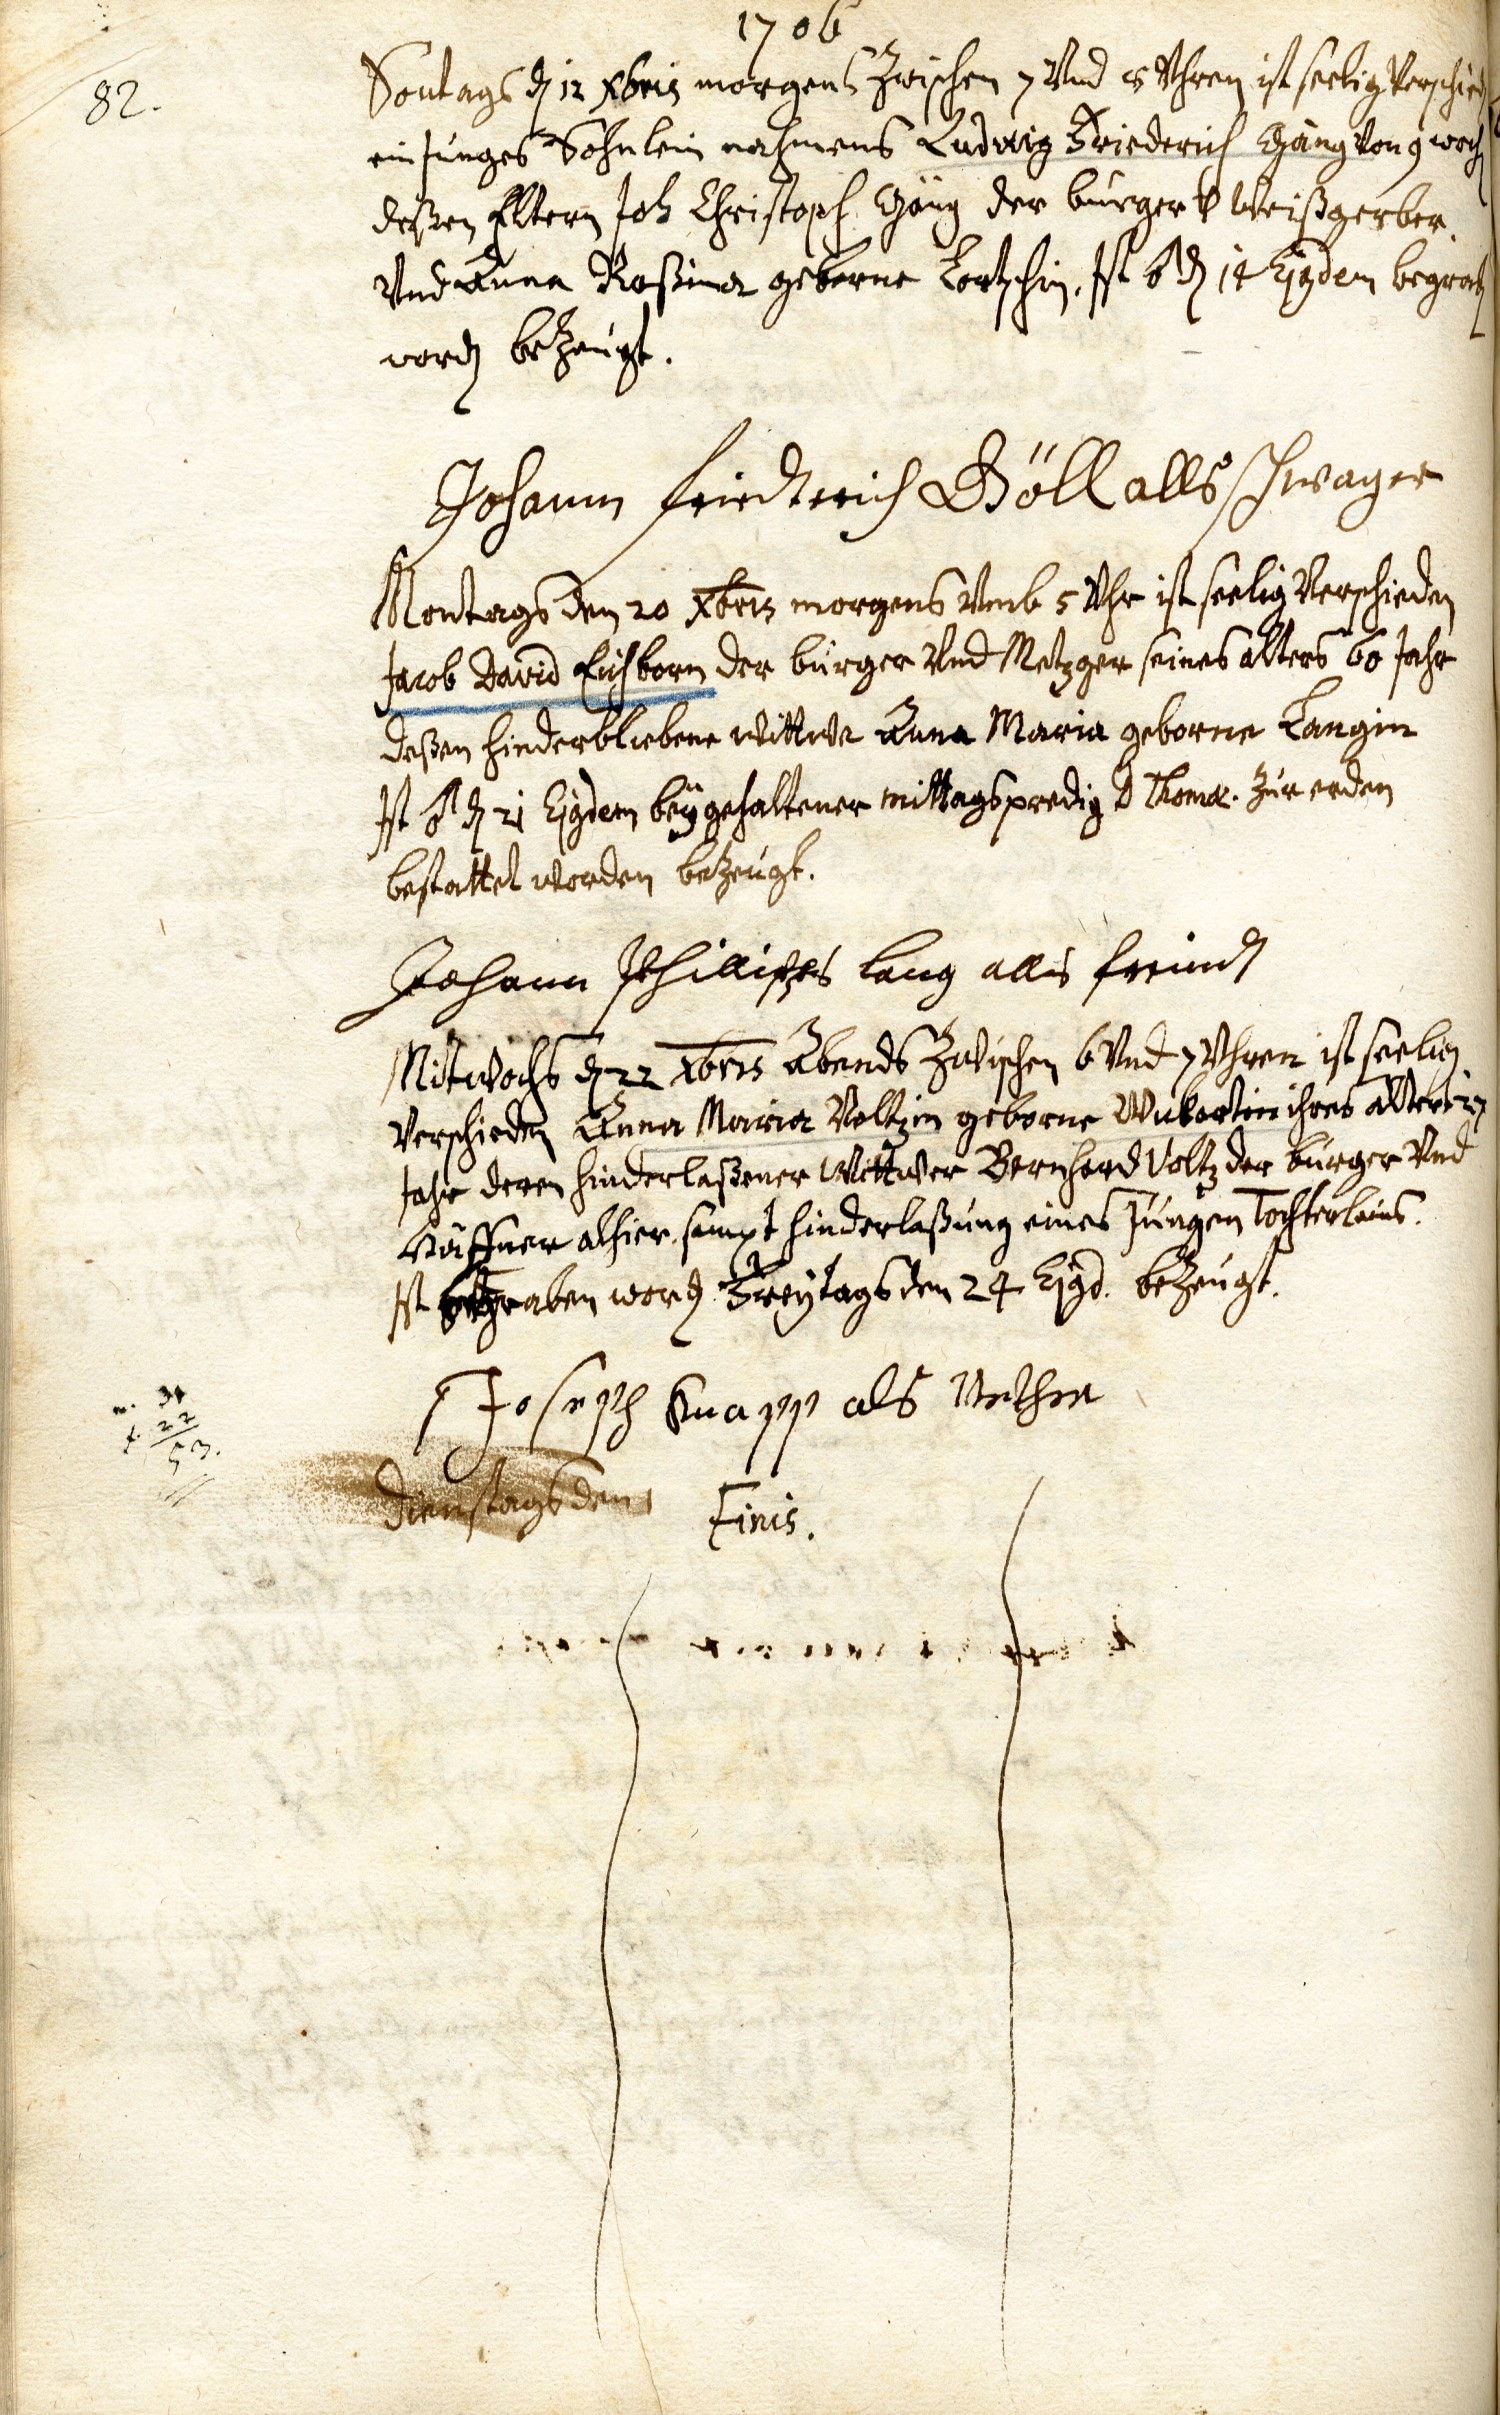 1706
82.
Sontags d 12 Xbris morgens Zwischen 7 Vnd 8 Vhren ist seelig Verschied
ein Junges Söhnlein nahmens Ludwig Friederich Gäng von 9 woch
deßen Eltern Joh Christoph Gäng der burger Weißgerber
Vnd Anna Roßina geborne ist d 14 Ejqdem begrab
word beZeugt.
Johann friedterich Böll alls schwager
Montags den 20 Xbris morgens Vmb 5 Vhr ist seelig Verschieden
Jacob David Eichborn der bürger Vnd Metzger seines alters 60 Jahr
deßen hinderbliebene wittwe Anna Maria geborne Langin
Ist d 21 Ejqdem beÿ gehaltener mittagspredig D Thomæ. Zur erden
bestattet worden beZeugt.
Johann Phillipps lang alls freindt
Mitwochs d 22 Xbris Abends Zwischen 6 Vnd 7 Vhren ist seelig
Verschieden Anna Maria Voltzin geborne ihres alters 27
Jahr deren hinderlaßener Wittwer Bernhard Voltz der bürger Vnd
Häffner alhier sampt hinderlaßung eines Jungen Töchterleins.
Ist begraben word Freÿtags den 24 Ejqd. beZeugt.
Joseph Knapp als
m. 31
f. 22
53.
Dienstags den
Finis.